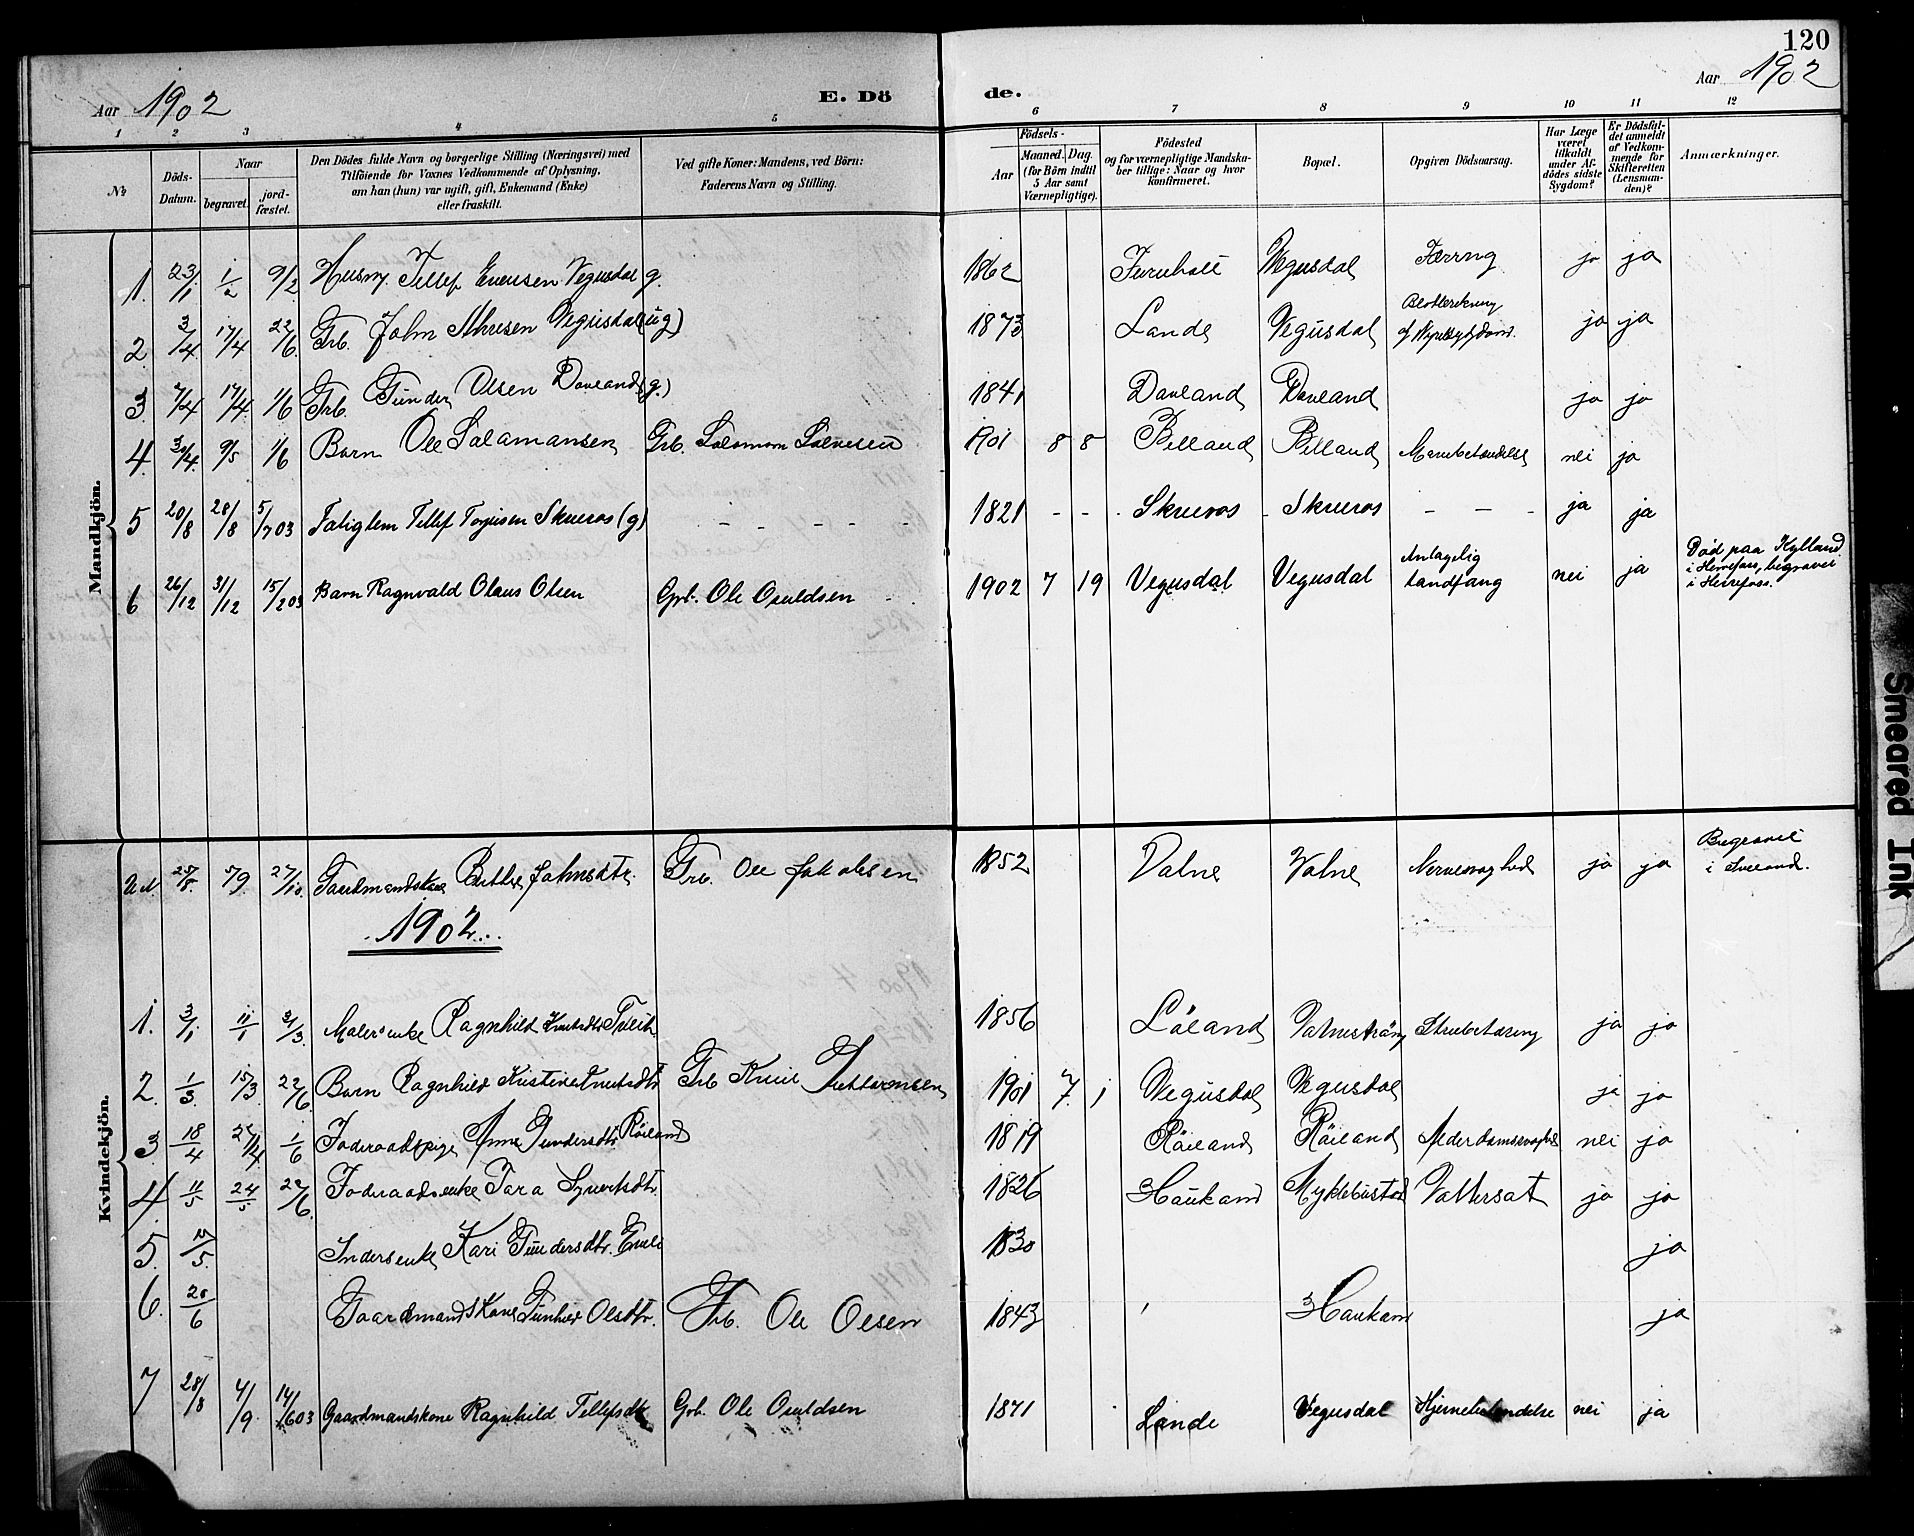 120
Aar 1902
E. Dö
de.
Aar 1902
1 2 3 4 5 6 7 8 9 10 11 12
№
Döds-Datum.
Naar
begravet.
jord-fæstet.
Den Dödes fulde Navn og borgerlige Stilling (Næringsvei) med
Tilföiende for Voxnes Vedkommende af Oplysning,
om han (hun) var ugift, gift, Enkemand (Enke)
eller fraskilt.
Ved gifte Koner: Mandens, ved Börn:
Faderens Navn og Stilling.
Födsels-
Aar
Maaned. Dag.
(for Börn indtil
5 Aar samt
Værnepligtige).
Födested
og for værnepligtige Mandska-
ber tillige: Naar og hvor
konfirmeret.
Bopæl.
Opgiven Dödsaarsag.
Har Læge
været
tilkaldt
under Af-
dödes sidste
Sygdom?
Er Dödsfal-
det anmeldt
af Vedkom-
mende for
Skifteretten
(Lensman-
den)?
Anmærkninger.
Mandkjön.
1. 23/1 1/2 9/2 Husm. Tellef Evensen Vegusdal g. 1862 Vegusdal Tærring ja ja
2 3/4 17/4 22/6 Grb. John Vegusdal (ug) 1873 Lande Vegusdal ja ja
3 7/4 17/4 1/6 Grb. Gunder Olsen Dovland (g.) 1841 Dovland Dovland ja ja
4. 30/4 9/5 1/6 Barn Ole Salamonsen Grb. Salomon 1901 8 8 Belland Belland nei ja
5 20/8 28/8 5/7 03 Tellef Skreros (g) - - - - 1821 - - Skreros - Skreros - - - ja ja
6 26/12 31/12 15/2 03 Barn Ragnvald Olaus Olsen Grb. Ole Osuldsen 1902 7 19 Vegusdal Vegusdal Antagelig tandfang nei ja
Död paa Kylland
i Herefoss, begravet
i Herefoss.
Kvindekjön.
Gaardmandskone Berthe Johnsdtr. Grb. Ole Jakobsen 1852 Valne Valne Nervesvaghed ja ja
Begravet
i Iveland.
1902
1. 3/1 11/1 Malerenke Ragnhild Knutsdtr 1856 Løland Strubetæring ja ja
2. 1/3 15/3 22/6. Barn Ragnhild Kristine Knutsdtr Grb Knut 1901 7. 1 Vegusdal Vegusdal ja ja
3 18/4 1/6 Føderaadspige Anne Gundersdtr Røiland 1819 Røiland Røiland Alderdomssvaghed nei ja
4 11/5 24/5 22/6. Føderaadsenke Tara Syvertsdtr. 1826 Haukom Myklebustad Vattersot ja ja
5. Inderstenke Kari Gundersdtr. 1830 ja
6. 20/6 Gaardmandskone Gunhild Olsdtr. Grb. Ole Olsen 1843 Haukom ja
7 28/8 4/9. 14/6 03 Gaardmandskone Ragnhild Tellefsdtr Grb. Ole Osuldsen 1871 Lande Vegusdal Hjernebetændelse nei ja
Smeared Ink